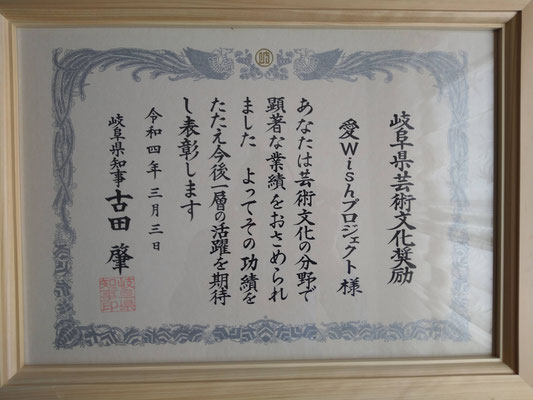 岐阜県芸術文化奨励
愛Wishプロジェクト 様
あなたは芸術文化の分野で
顕著な業績をおさめられ
ました よってその功績を
たたえ今後一層の活躍を期待
し表彰します
令和四年三月三日
岐阜県知事 古田 肇
岐阜県
知事印